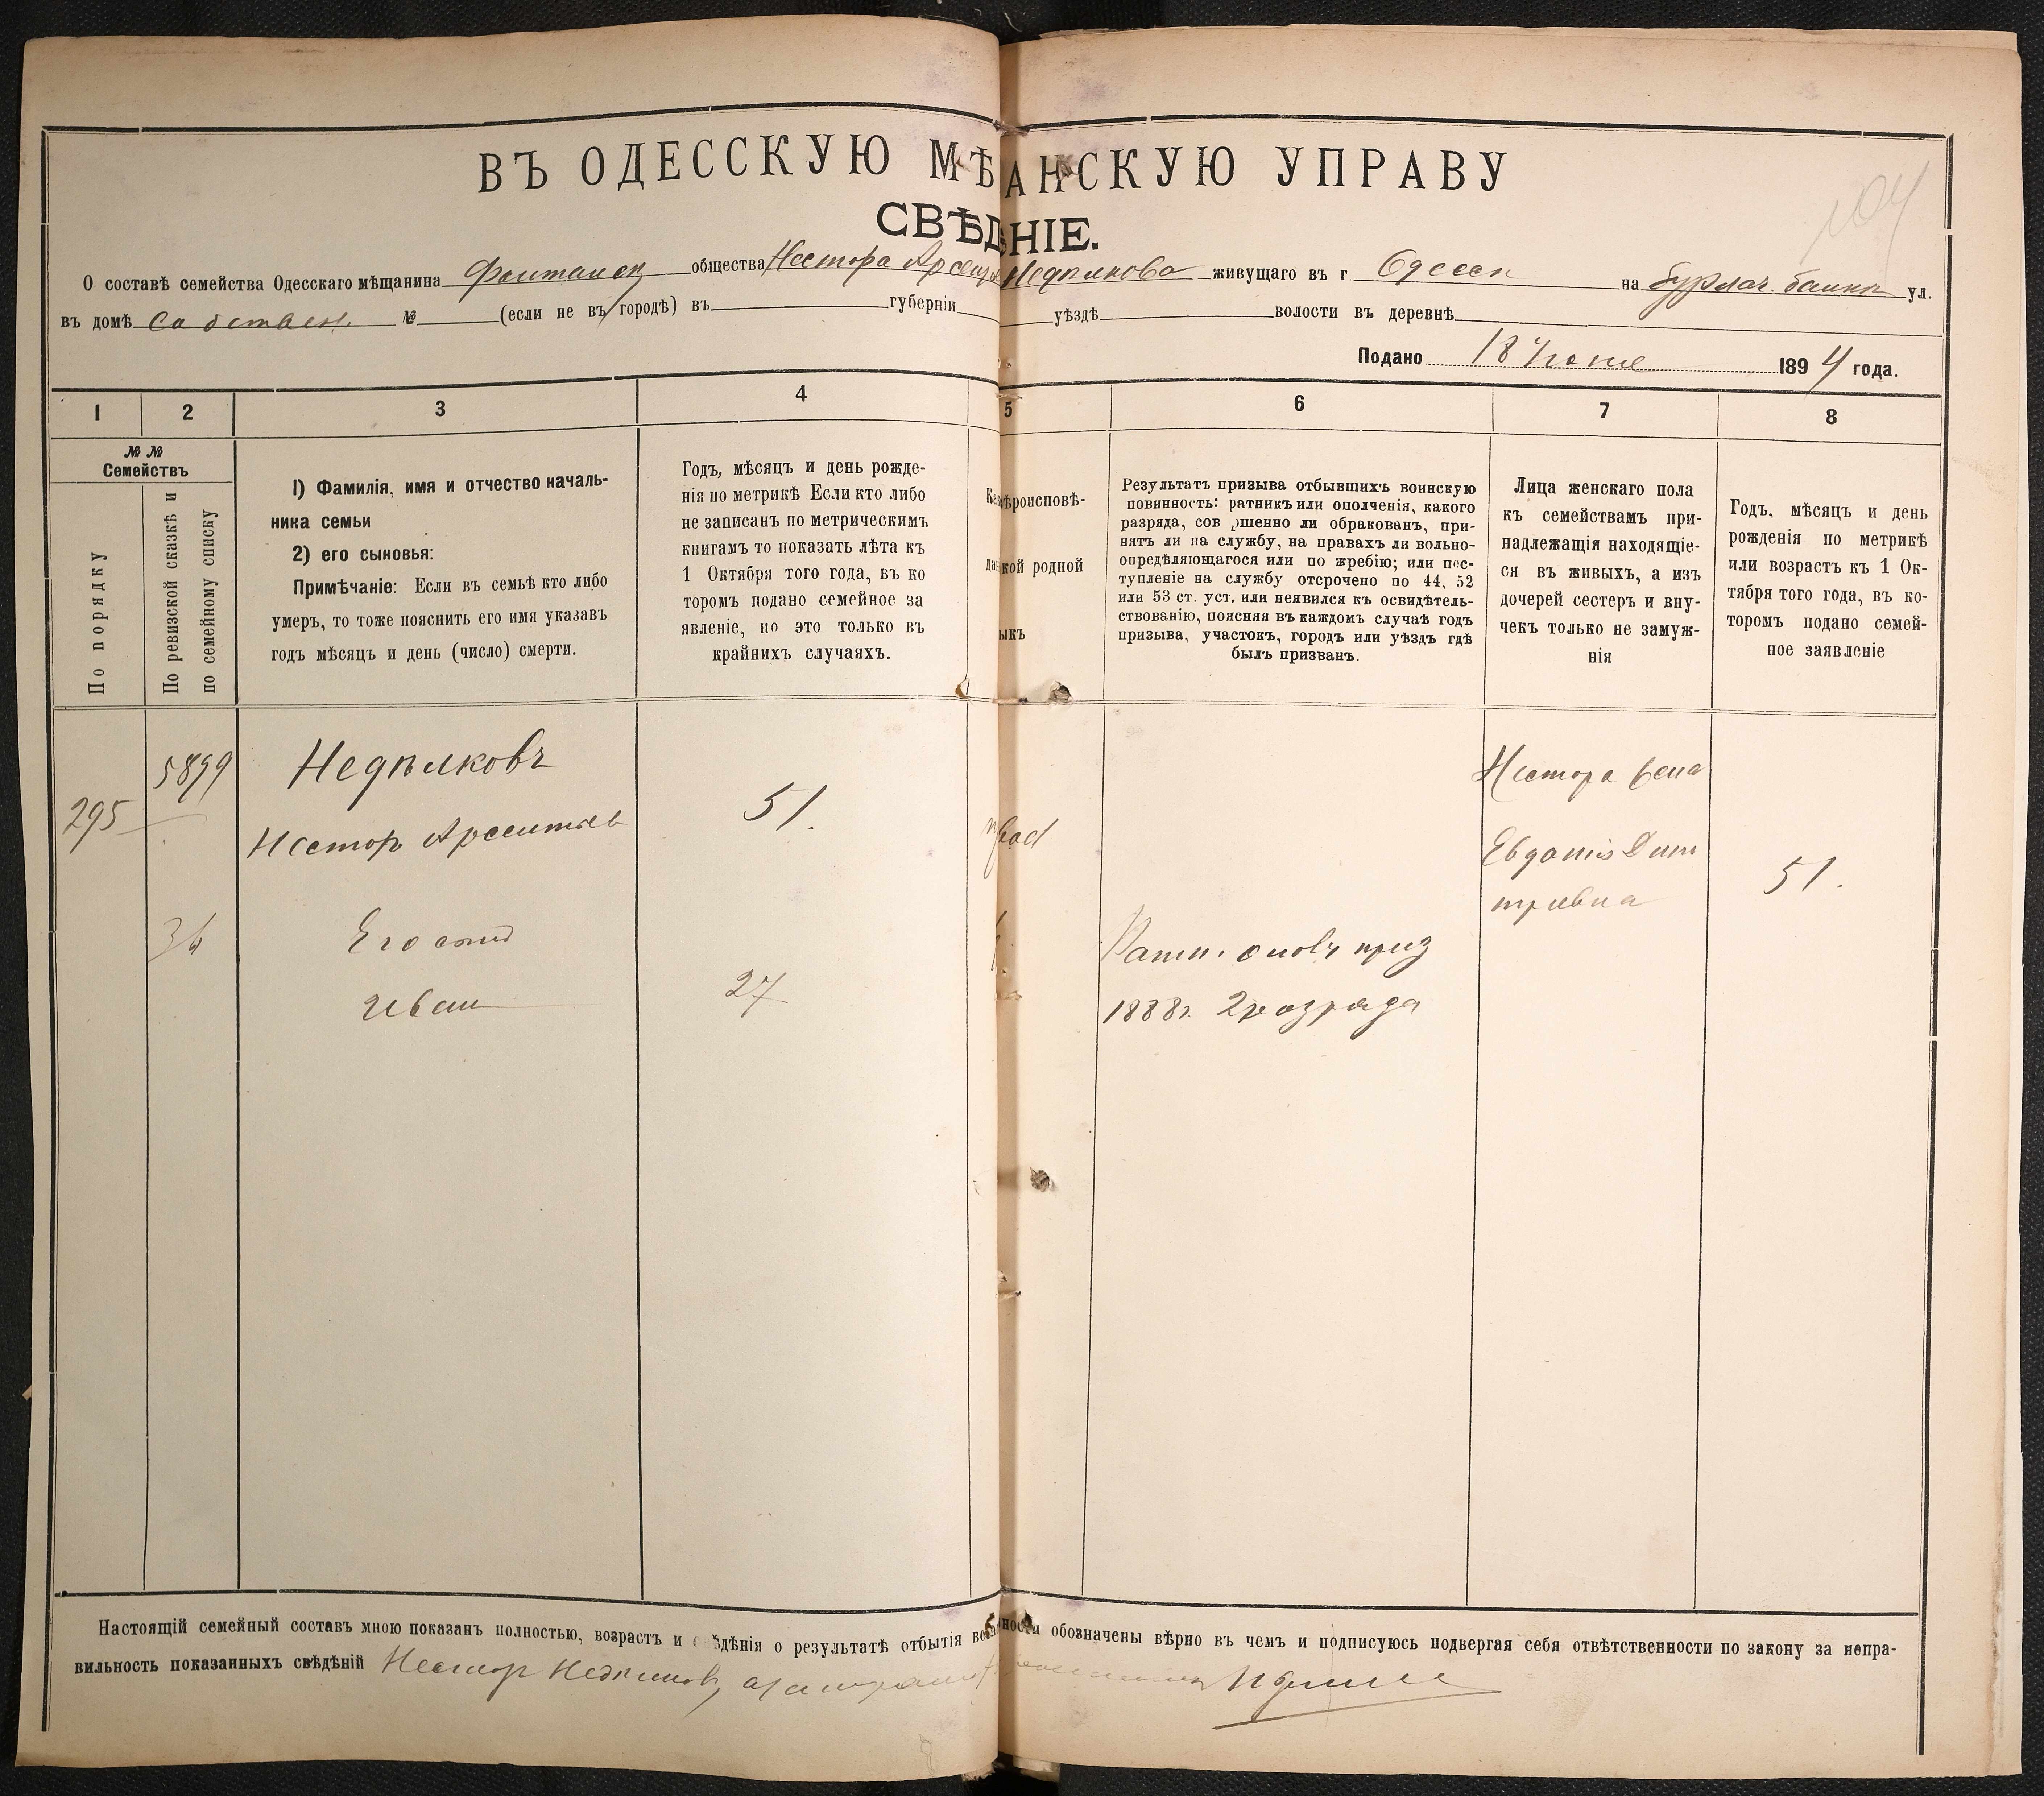 ВЪ ОДЕССКУЮ МѢ АНСКУЮ УПРАВУ
СВѢДѢНІЕ.
104
О составѣ семейства Одесскаго мѣщанина Фонтанск общества Нестора Арсен Недѣлкова живущаго въ г. Одессѣ на Бурлач. балкѣ ул.
въ домѣ собствен. № (если не въ городѣ) въ губерніи уѣздѣ волости въ деревнѣ
Подано 18 Іюня 1894 года.
1 2 3 4 5 6 7 8
№ №
Семействъ
По порядку
По ревизской сказкѣ и
по семейному списку
1) Фамилія, имя и отчество началь-
ника семьи
2) его сыновья:
Примѣчаніе: Если въ семьѣ кто либо
умеръ, то тоже пояснить его имя указавъ
годъ мѣсяцъ и день (число) смерти.
Годъ, мѣсяцъ и день рожде-
нія по метрикѣ Если кто либо
не записанъ по метрическимъ
книгамъ то показать лѣта къ
1 Октября того года, въ ко
торомъ подано семейное за
явленіе, но это только въ
крайнихъ случаяхъ.
Ка ѣроисповѣ-
да кой родной
ыкъ
Результатъ призыва отбывшихъ воинскую
повинность: ратникъ или ополченія, какого
разряда, сов ршенно ли обракованъ, при-
нятъ ли на службу, на правахъ ли вольно-
опредѣляющагося или по жребію; или пос-
тупленіе на службу отсрочено по 44, 52
или 53 ст. уст. или неявился къ освидѣтель-
ствованію, поясняя въ каждомъ случаѣ годъ
призыва, участокъ, городъ или уѣздъ гдѣ
былъ призванъ.
Лица женскаго пола
къ семействамъ при-
надлежащія находящіе-
ся въ живыхъ, а изъ
дочерей сестеръ и вну-
чекъ только не замуж-
нія
Годъ, мѣсяцъ и день
рожденія по метрикѣ
или возрастъ къ 1 Ок-
тября того года, въ ко-
торомъ подано семей-
ное заявленіе
295
5899
Недѣлковъ
Нестор Арсентьев
51.
прав
Нестора жена
Евдотія Дим
тріевна
51.
36
Его сын
Иван
27
Ратн. ополч приз
1888г. 2 разряда
Настоящій семейный составъ мною показанъ полностью, возрастъ и с ѣдѣнія о результатѣ отбытія во ности обозначены вѣрно въ чемъ и подписуюсь подвергая себя отвѣтственности по закону за непра-
вильность показанныхъ свѣдѣній Нестор Недѣлков,